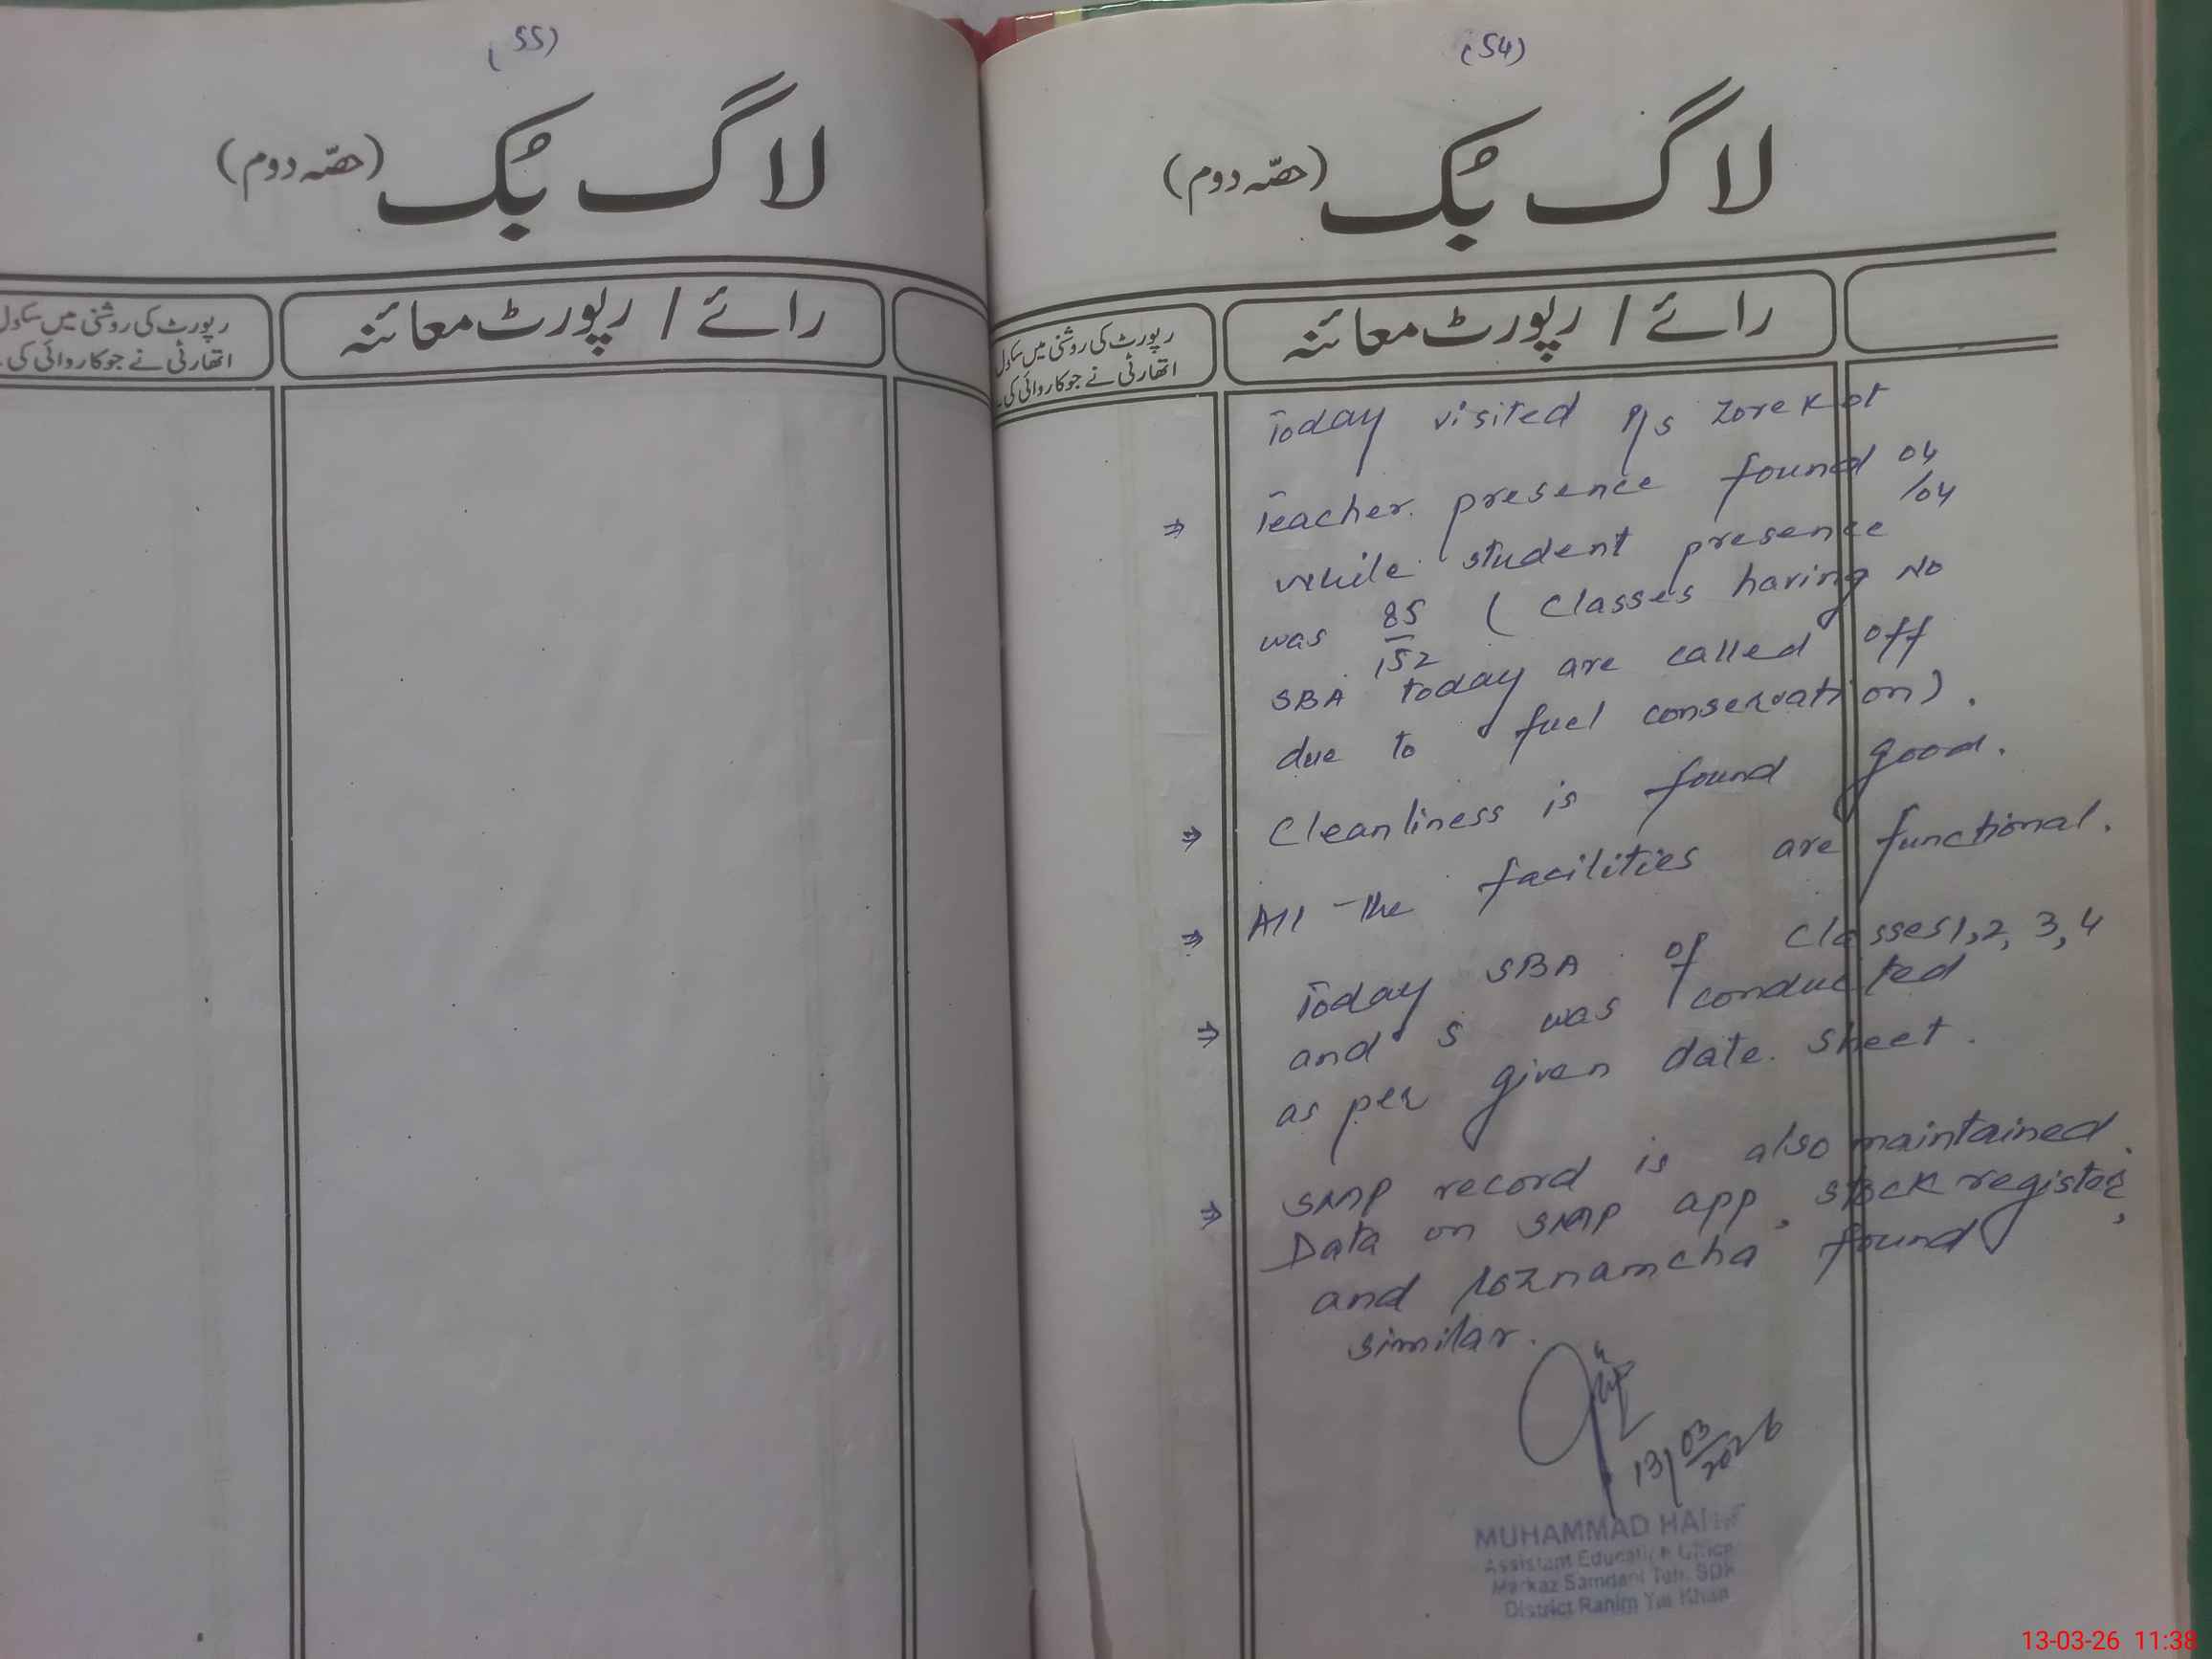 (55)
لاگ بُک (حصّہ دوم)
رائے / رپورٹ معائنہ
رپورٹ کی روشنی میں سکول
اتھارٹی نے جو کاروائی کی۔
(54)
لاگ بُک (حصّہ دوم)
رائے / رپورٹ معائنہ
رپورٹ کی روشنی میں سکول
اتھارٹی نے جو کاروائی کی۔
Today visited P/s Zorekot
⇒ Teacher presence found 04
/04
while student presence
was 85/152 ( Classes having No
SBA today are called off
due to fuel conservation).
⇒ Cleanliness is found good.
⇒ All the facilities are functional.
⇒ Today SBA of Classes 1,2,3,4
and 5 was conducted
as per given date sheet.
⇒ SMP record is also maintained.
Data on SMP app, stock register,
and roznamcha found
similar.
13/03/2026
MUHAMMAD
Assistant Education Office
Markaz Samdani Teh. SDK
District Rahim Yar Khan
13-03-26 11:38